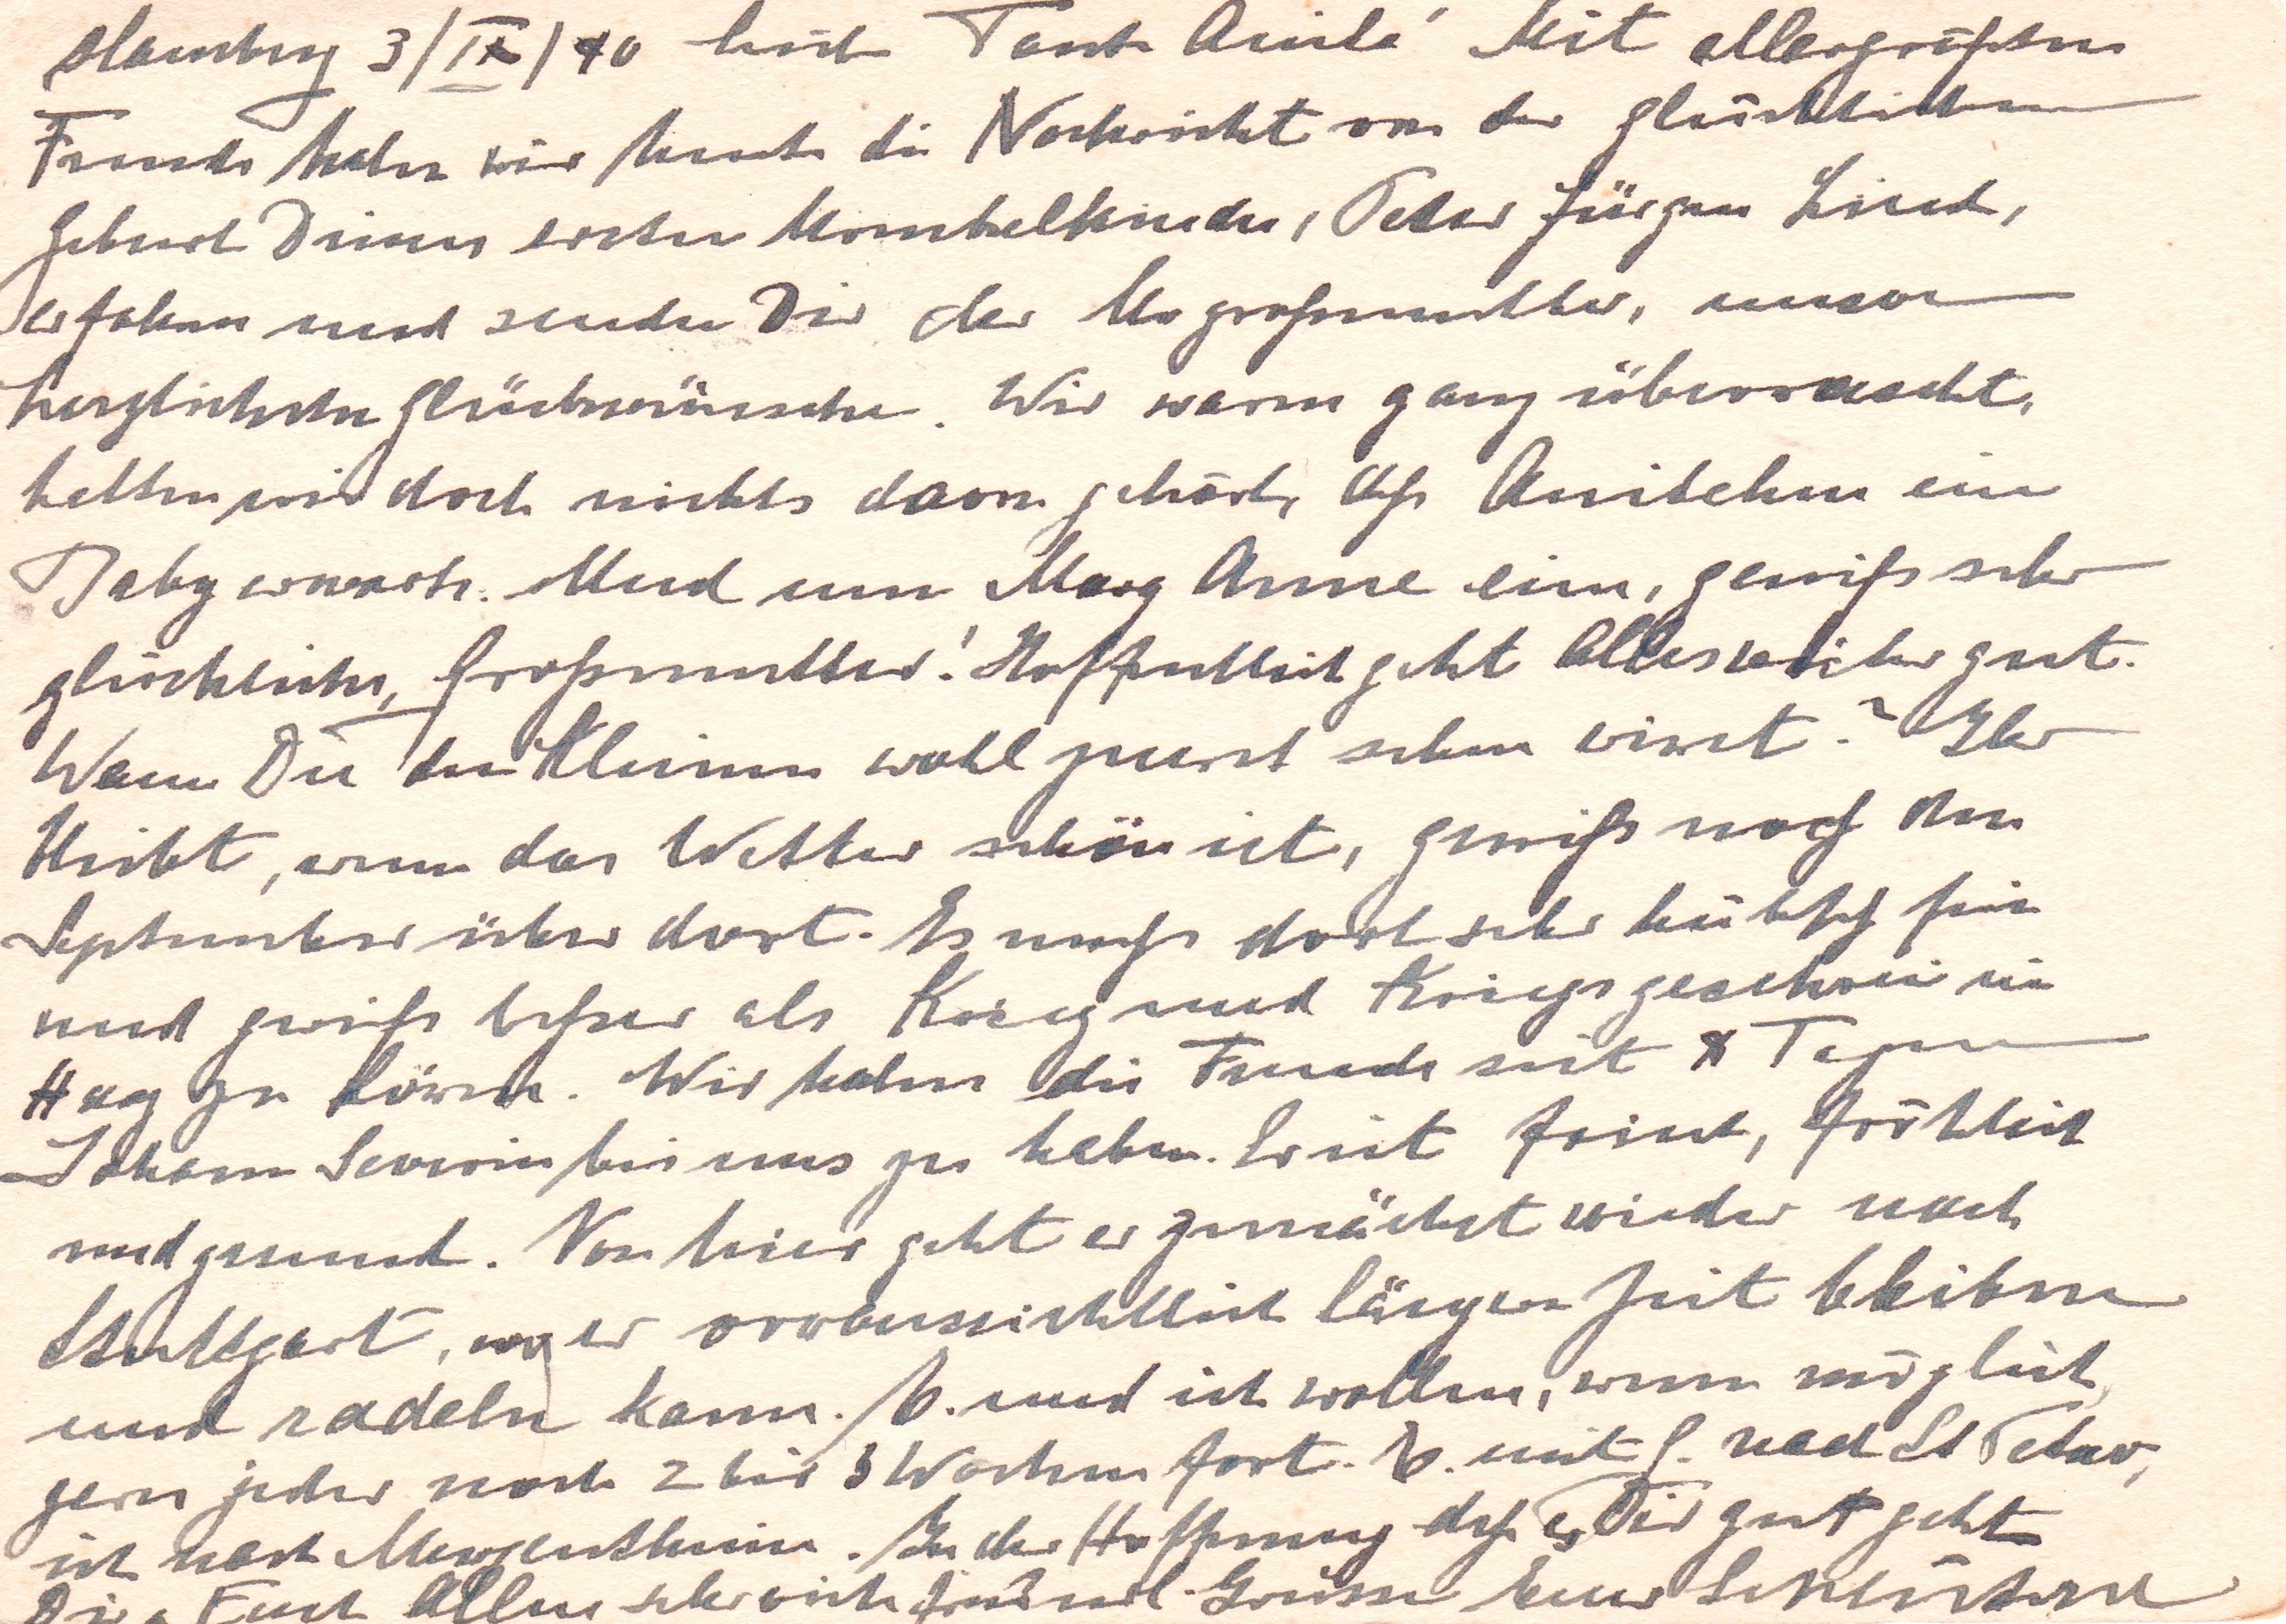 Hamburg 3/IX/40 liebe Tante Anita! Mit allergrößter
Freude haben wir heute die Nachricht von der glücklichen
Geburt Deines ersten Urenkelkindes, Peter Jürgen Lind,
erfahren und senden Dir der Urgroßmutter, unsere
herzlichsten Glückwünsche. Wir waren ganz überrascht,
hatten wir doch nichts davon gehört, daß Anitchen ein
Baby erwarte. Und nun Marg Anne eine, gewiß sehr
glückliche, Großmutter! Hoffentlich geht Alles weiter gut.
Wann Du den Kleinen wohl zuerst sehen wirst? Ihr
bleibt, wenn das Wetter schön ist, gewiß noch den
September über dort. Es muß dort sehr hübsch sein
und gewiß besser als Krieg und Kriegsgeschrei im
Haag zu hören. Wir haben die Freude seit 8 Tagen
Johann Severin bei uns zu haben. Er ist frisch, fröhlich
und gesund. Von hier geht er zunächst wieder nach
Stuttgart, wo er voraussichtlich längere Zeit bleiben
und radeln kann. B. und ich wollen, wenn möglich
gern jeder noch 2 bis 3 Wochen fort. B. mit G. nach St Peter,
ich nach Mergentheim. In der Hoffnung daß es Dir gut geht
Dir u Euch Allen sehr viele freundl. Grüsse